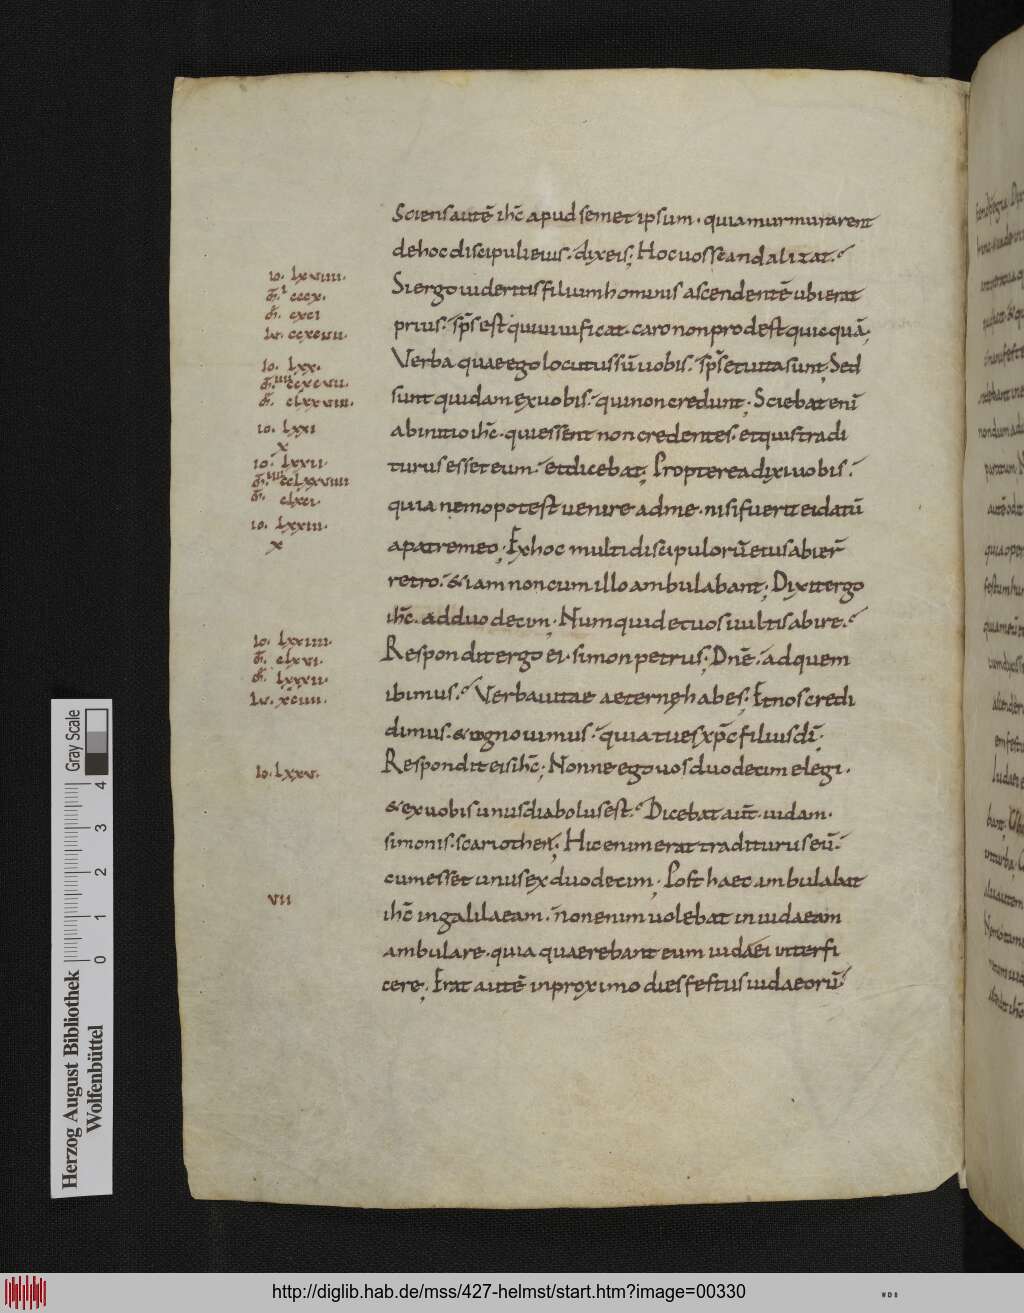 Sciens autē ihc̄ apud semet ipsum · quia murmurarent
de hoc discipuli eius · dixit eis; Hoc uos scandalizat ·
Si ergo uideritis filium hominis ascendentē ubi erat
prius · sps̄ est qui uiuificat · caro non prodest quicquā;
Verba quae ego locutus sū uobis · sps̄ et uita sunt; Sed
sunt quidam ex uobis · qui non credunt; Sciebat enī
ab initio ihc̄ · qui essent non credentes · et quis tradi
turus esset eum · et dicebat; Propterea dixi uobis ·
quia nemo potest uenire ad me · nisi fuerit ei datū
a patre meo; Ex hoc multi discipulorū eius abier̄
retro · & iam non cum illo ambulabant; Dixit ergo
ihc̄ · ad duodecim; Numquid et uos uultis abire ·
Respondit ergo ei · simon petrus; Dnē · ad quem
ibimus · Verba uitae aeternę habes; Et nos credi
dimus · & cognouimus · quia tu es xpc̄ filius dī;
Respondit eis ihc̄; Nonne ego uos duodecim elegi ·
& ex uobis unus diabolus est · Dicebat aut̄ · iudam ·
simonis · scariothen; Hic enim erat traditurus eū ·
cum esset unus ex duodecim; Post haec ambulabat
ihc̄ in galilaeam · non enim uolebat in iudaeam
ambulare · quia quaerebant eum iudaei interfi
cere; Erat autē in proximo dies festus iudaeorū
Io. lxviiii.
cccx.
cxci
Io. lxx.
clxxviii.
Io. lxxi
x
Io. lxxii.
clxci.
Io. lxxiii.
x
Io. lxxiiii.
clxvi.
lxxxii.
Io. lxxv.
vii
Herzog August Bibliothek
Wolfenbüttel
Gray Scale
0 1 2 3 4
http://diglib.hab.de/mss/427-helmst/start.htm?image=00330